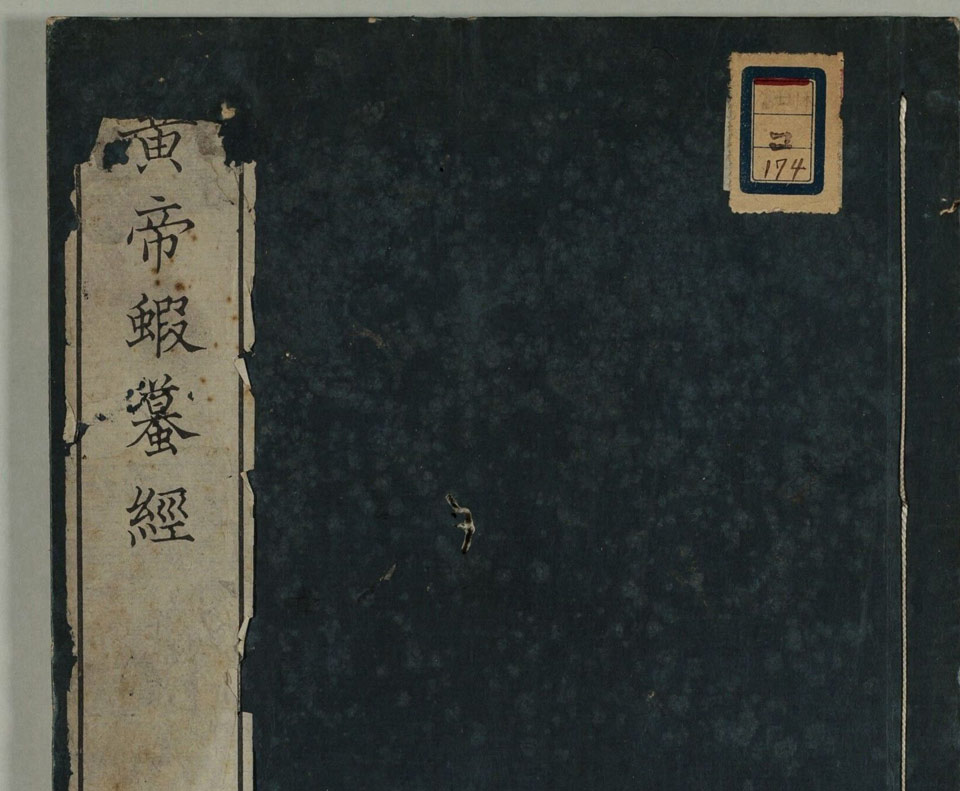 黄帝蝦蟇經
174